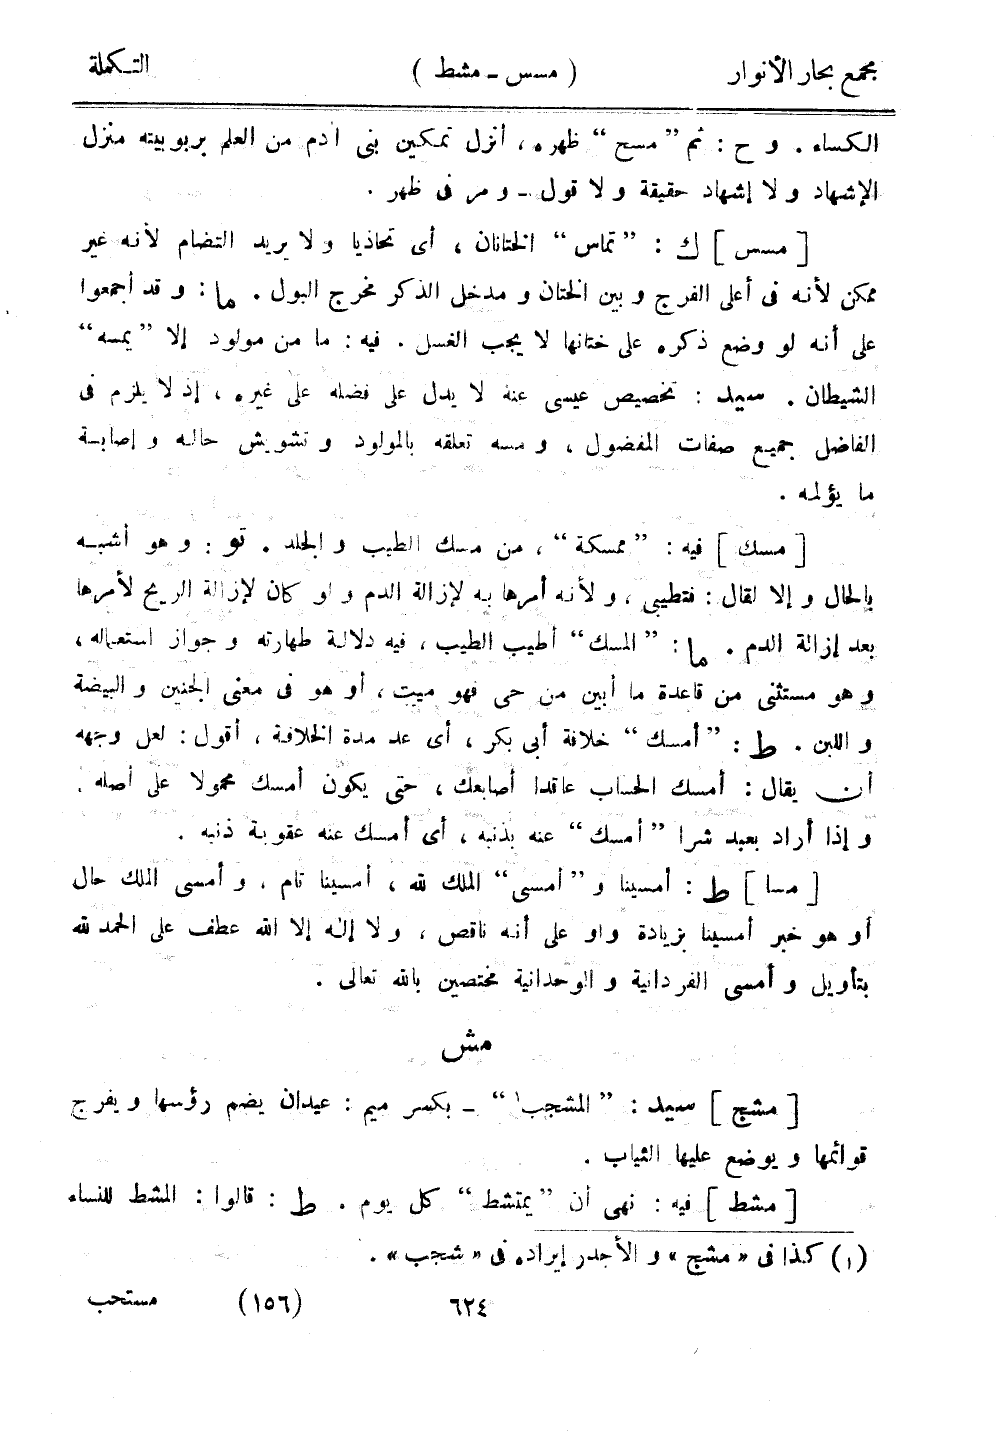 مجمع بحار الأنوار ( مسس - مشط ) التكملة
الكساء . و ح : ثم ”مسح“ ظهره ، أنزل تمكين بنى آدم من العلم بربوبيته منزل
الإشهاد و لا إشهاد حقيقة و لا قول - و مر فى ظهر .
[ مسس ] ك : ”تماس“ الختانان ، أى تحاذيا و لا يريد التضام لأنه غير
ممكن لأنه فى أعلى الفرج و بين الختان و مدخل الذكر مخرج البول . ما : و قد أجمعوا
على أنه لو وضع ذكره على ختانها لا يجب الغسل . فيه : ما من مولود إلا ”يمسه“
الشيطان . سيد : تخصيص عيسى عنه لا يدل على فضله على غيره ، إذ لا يلزم فى
الفاضل جميع صفات المفضول ، و مسه تعلقه بالمولود و تشويش حاله و إصابة
ما يؤلمه .
[ مسك ] فيه : ”ممسكة“ ، من مسك الطيب و الجلد . تو : و هو أشبه
بالحال و إلا لقال : فتطيبى ، و لأنه أمرها به لإزالة الدم و لو كان لإزالة الريح لأمرها
بعد إزالة الدم . ما : ”المسك“ أطيب الطيب ، فيه دلالة طهارته و جواز استعماله ،
و هو مستثنى من قاعدة ما أبين من حى فهو ميت ، أو هو فى معنى الجنين و البيضة
و اللبن . ط : ”أمسك“ خلافة أبى بكر ، أى عد مدة الخلافة ، أقول : لعل وجهه
أن يقال : أمسك الحساب عاقدا أصابعك ، حتى يكون أمسك محمولا على أصله .
و إذا أراد بعبد شرا ”أمسك“ عنه بذنبه ، أى أمسك عنه عقوبة ذنبه .
[ مسا ] ط : أمسينا و ”أمسى“ الملك لله ، أمسينا تام ، و أمسى الملك حال
أو هو خبر أمسينا بزيادة واو على أنه ناقص ، و لا إله إلا الله عطف على الحمد لله
بتأويل و أمسى الفردانية و الوحدانية مختصين بالله تعالى .
مش
[ مشج ] سيد : ”المشجب١“ - بكسر ميم : عيدان يضم رؤسها و يفرج
قوائمها و يوضع عليها الثياب .
[ مشط ] فيه : نهى أن ”يمتشط“ كل يوم . ط : قالوا : المشط للنساء
(١) كذا فى «مشج» و الأجدر إيراده فى «شجب» .
٦٢٤ (١٥٦) مستحب